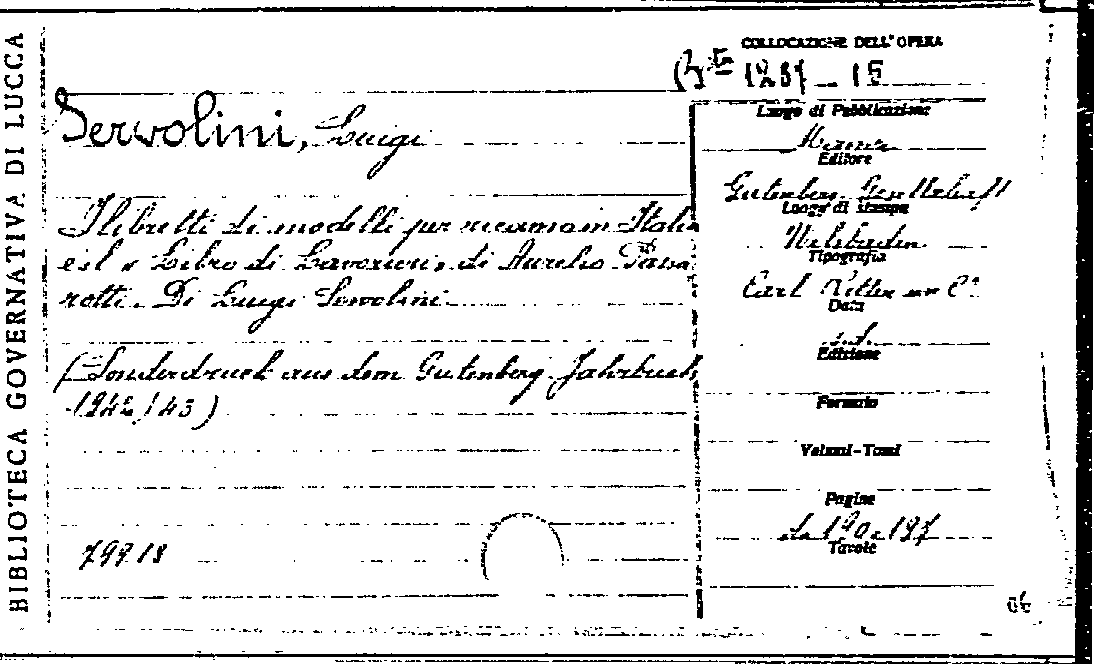 BIBLIOTECA GOVERNATIVA DI LUCCA
COLLOCAZIONE DELL'OPERA
Bta 1237 - 15
Servolini, Luigi
I libretti di modelli per ricamo in Italia
e il "Libro di Lavorieri" di Aurelio Passa
rotti. Di Luigi Servolini.
(Sonderdruck aus dem Gutenberg Jahrbuch
1942/43)
79918
Luogo di Pubblicazione
Editore
Gutenberg Gesellschaft
Luogo di stampa
Tipografia
Carl Ritter
Data
s.d.
Edizione
Formato
Volumi-Tomi
Pagine
da 190 a 197
Tavole